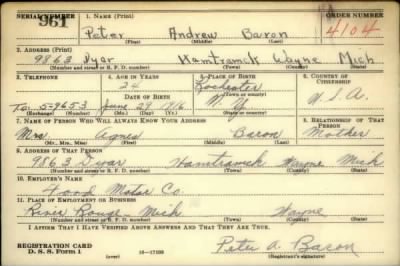 SERIAL NUMBER 961
1. NAME (Print)
ORDER NUMBER
Peter Andrew Baron
4104
(First) (Middle) (Last)
2. ADDRESS (Print)
9863 Dyar Hamtramck Wayne Mich
(Number and street or R. F. D. number) (Town) (County) (State)
3. TELEPHONE
4. AGE IN YEARS
5. PLACE OF BIRTH
6. COUNTRY OF CITIZENSHIP
24
Rochester
DATE OF BIRTH
(Town or county)
To. 5-9653
June 29 1916
N.Y.
U.S.A.
(Exchange) (Number)
(Mo.) (Day) (Yr.)
(State or country)
7. NAME OF PERSON WHO WILL ALWAYS KNOW YOUR ADDRESS
8. RELATIONSHIP OF THAT PERSON
Mrs. Agnes Baron Mother
(Mr., Mrs., Miss) (First) (Middle) (Last)
9. ADDRESS OF THAT PERSON
9863 Dyar Hamtramck Wayne Mich
(Number and street or R. F. D. number) (Town) (County) (State)
10. EMPLOYER'S NAME
Ford Motor Co.
11. PLACE OF EMPLOYMENT OR BUSINESS
River Rouge Mich Wayne
(Number and street or R. F. D. number) (Town) (County) (State)
I AFFIRM THAT I HAVE VERIFIED ABOVE ANSWERS AND THAT THEY ARE TRUE.
REGISTRATION CARD
D. S. S. Form 1
16—17105
Peter A. Baron
(Registrant's signature)